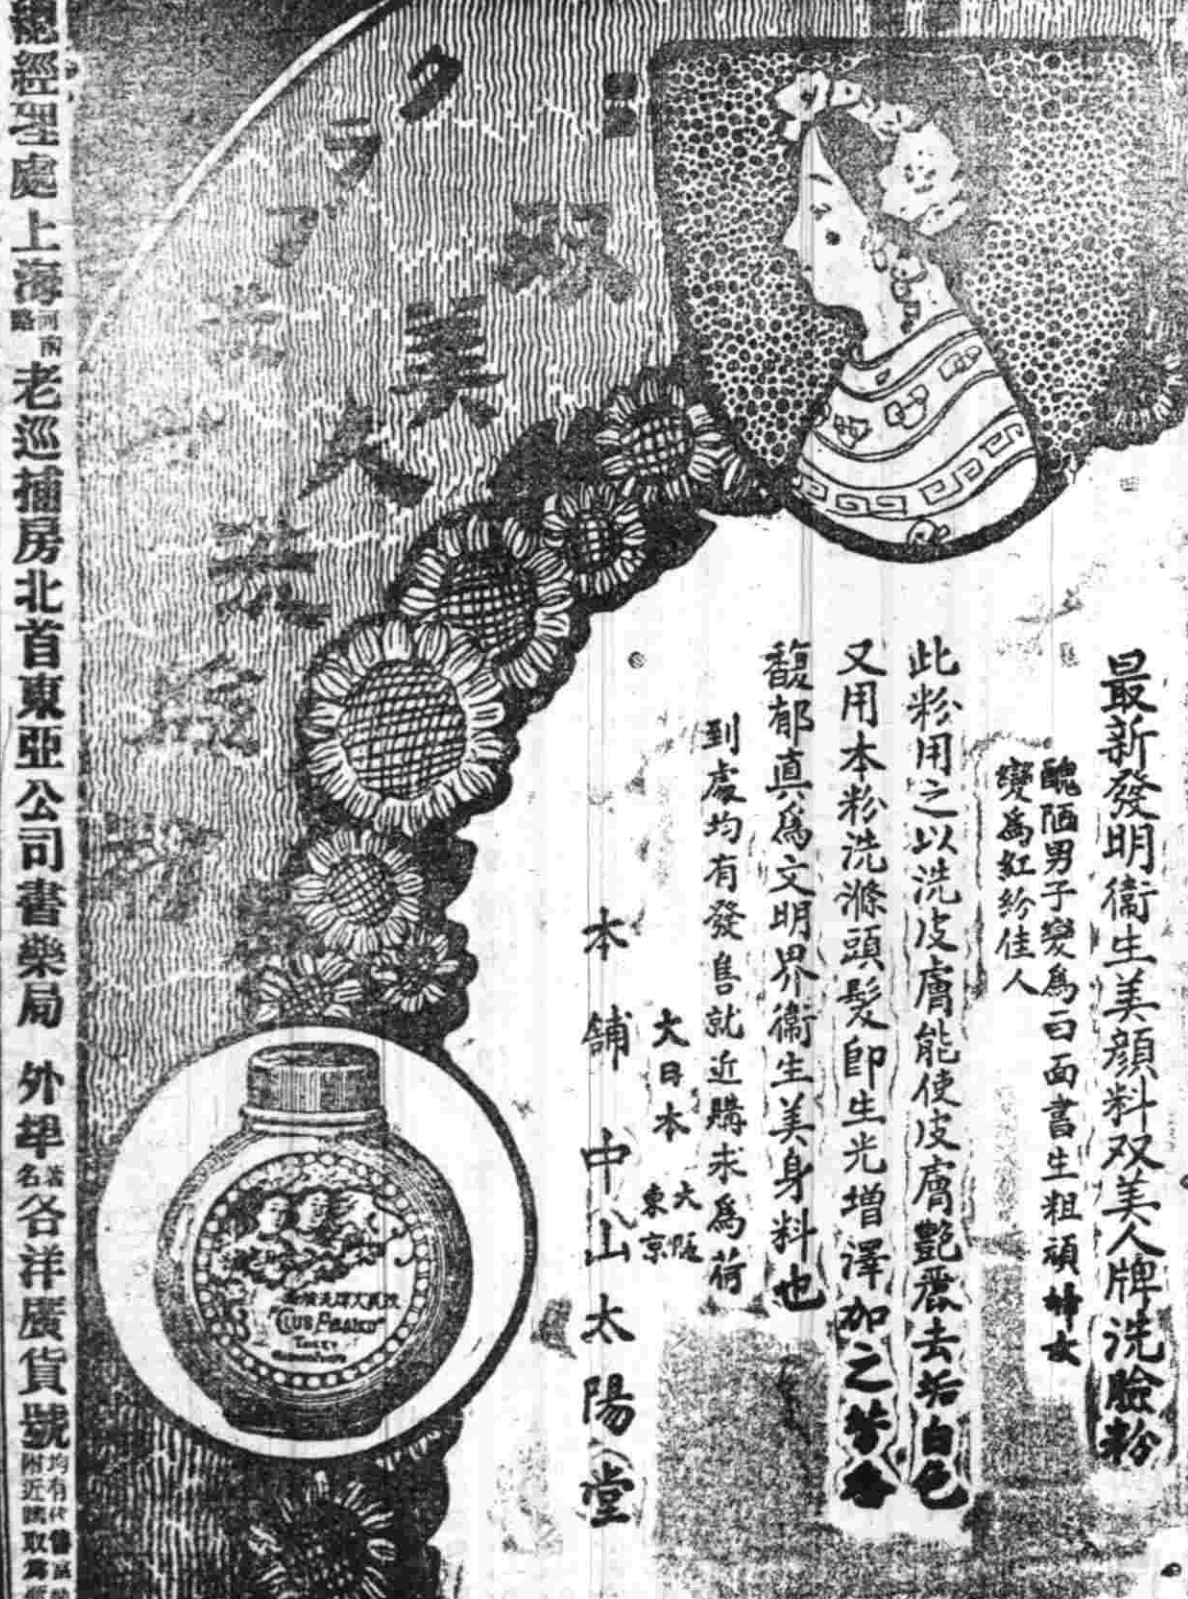 最新發明衞生美顔料双美人牌洗臉粉
醜陋男子變爲白面書生粗頑婦女
變爲紅粉佳人
此粉用之以洗皮膚能使皮膚艷麗去垢白色
又用本粉洗滌頭髮卽生光增澤加之芳香
馥郁真爲文明界衞生美身料也
到處均有發售就近購求爲荷
大日本
大阪
東京
本舖中山太陽堂
双美人洗
クラブ
CLUB ARAIKO
總經理處上海河南路老巡捕房北首東亞公司書藥局 外埠著名各洋廣貨號均有代售
附近請取